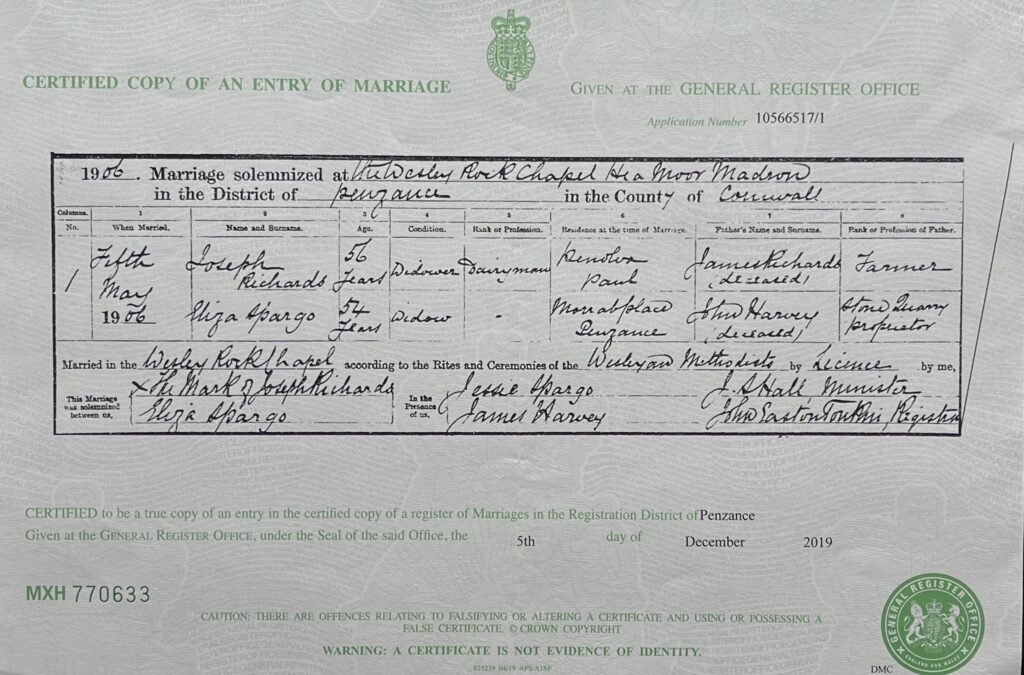 CERTIFIED COPY OF AN ENTRY OF MARRIAGE
GIVEN AT THE GENERAL REGISTER OFFICE
Application Number 10566517/1
1906. Marriage solemnized at the Wesley Rock Chapel Hea Moor Madron
in the District of Penzance in the County of Cornwall
Columns. 1 2 3 4 5 6 7 8
No. When Married. Name and Surname. Age. Condition. Rank or Profession. Residence at the time of Marriage. Father's Name and Surname. Rank or Profession of Father.
1 Fifth May 1906
Joseph Richards 56 Years Widower Dairyman Paul James Richards (deceased) Farmer
Eliza Spargo 54 Years Widow - Morrab place Penzance John Harvey (deceased) Stone Quarry proprietor
Married in the Wesley Rock Chapel according to the Rites and Ceremonies of the Wesleyan Methodists by Licence by me,
This Marriage was solemnized between us,
X The Mark of Joseph Richards
Eliza Spargo
In the Presence of us,
Jessie Spargo
James Harvey
J. S Hall, Minister
John Easton Tonkin, Registrar
CERTIFIED to be a true copy of an entry in the certified copy of a register of Marriages in the Registration District of Penzance
Given at the GENERAL REGISTER OFFICE, under the Seal of the said Office, the 5th day of December 2019
MXH 770633
CAUTION: THERE ARE OFFENCES RELATING TO FALSIFYING OR ALTERING A CERTIFICATE AND USING OR POSSESSING A
FALSE CERTIFICATE. © CROWN COPYRIGHT
WARNING: A CERTIFICATE IS NOT EVIDENCE OF IDENTITY.
GENERAL REGISTER OFFICE
ENGLAND AND WALES
DMC